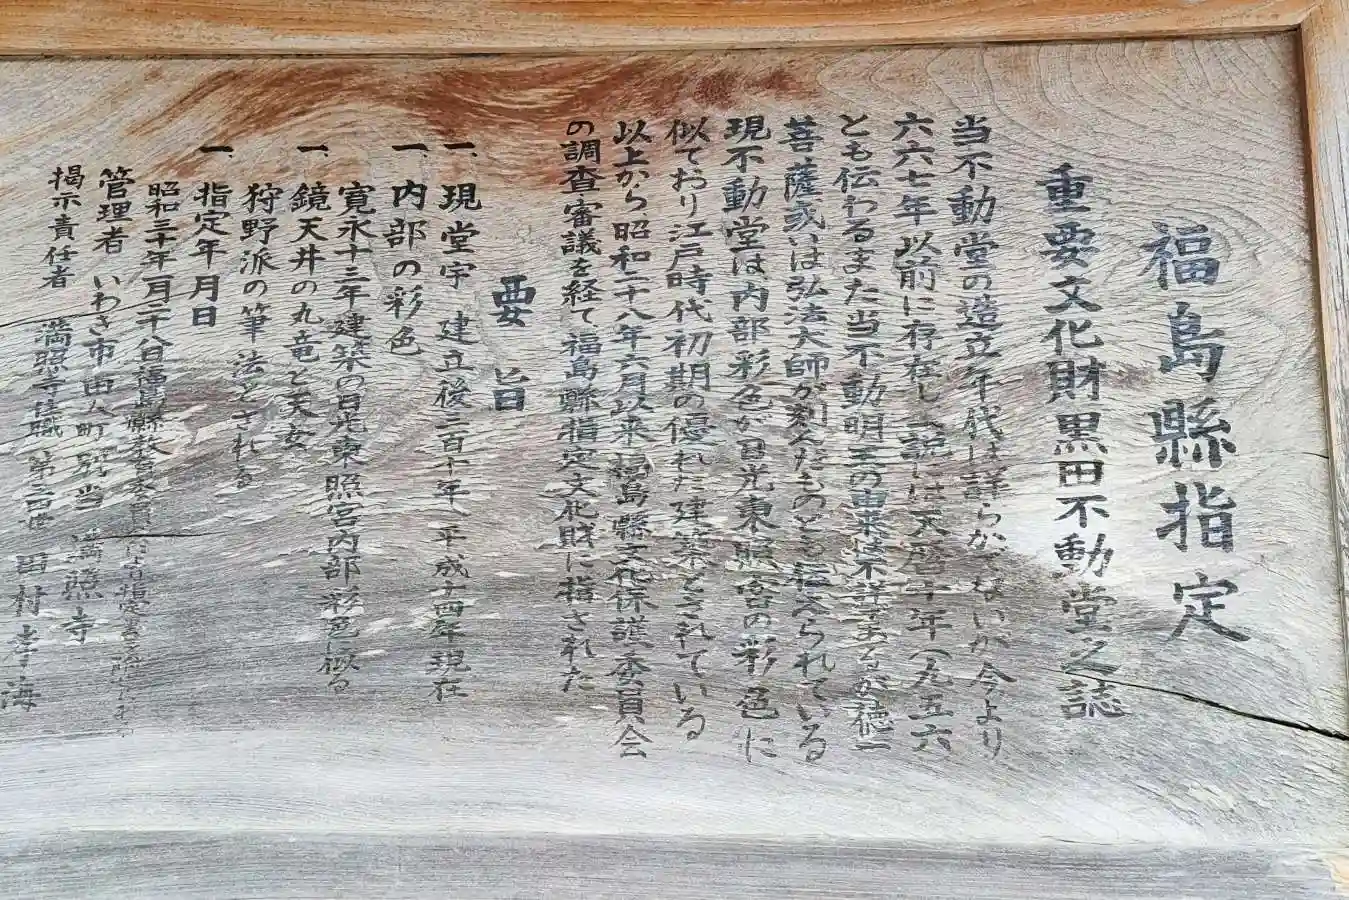 福島縣指定
重要文化財黒田不動堂之誌
当不動堂の造立年代は詳らかでないが今より
六六七年以前に存在し一説には天暦十年(九五六
とも伝わるまた当不動明王の由来は不詳であるが徳一
菩薩或いは弘法大師が刻んだものとも伝へられている
現不動堂は内部彩色が日光東照宮の彩色に
似ており江戸時代初期の優れた建築とされている
以上から昭和二十八年六月以来福島縣文化保護委員会
の調査審議を経て福島縣指定文化財に指された
要旨
一、現堂宇 建立後三百七十年 平成十四年現在
一、内部の彩色
寛永十三年建築の日光東照宮内部彩色に似る
一、鏡天井の丸竜と天女
狩野派の筆法とされる
一、指定年月日
昭和三十年二月二十八日福島縣教育委員会より指定書
管理者 いわき市田人町 別当 満照寺
掲示責任者 満照寺住職 田村孝海